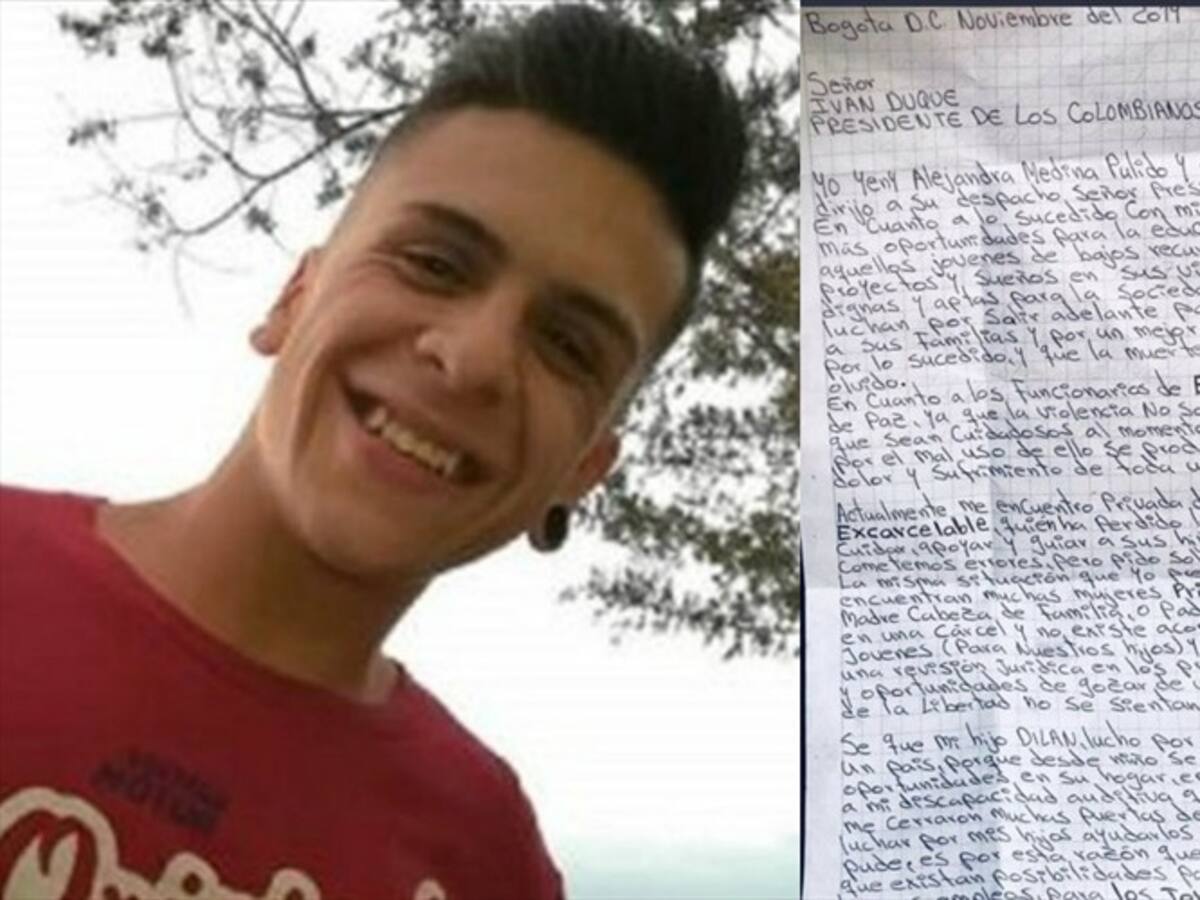 MOTOR
Bogota D.C. Noviembre del 2019
Señor
IVAN DUQUE
PRESIDENTE DE LOS COLOMBIANOS
Yo Yeny Alejandra Medina Pulido y
dirijo a su despacho Señor Pres
En Cuanto a lo sucedido Con mi
más oportunidades para la edu
aquellos jovenes de bajos recu
proyectos y sueños en sus v
dignas y aptas para la socied
luchan por salir adelante p
a sus Familias y por un mejor
por lo sucedido, y que la muert
olvido.
En Cuanto a los Funcionarios de E
de Paz, Ya que la violencia No s
que sean Cuidadosos al moment
por el mal uso de ello se prod
dolor y Sufrimiento de toda
Actualmente me encuentro Privada
Excarcelable, quien ha Perdido
Cuidar, apoyar y guiar a sus hi
Cometemos errores, pero pido so
La misma situación que Yo pre
encuentran muchas mujeres Pri
Madre Cabeza de Familia, o Pad
en una Cárcel y no existe aco
Jovenes (Para Nuestros hijos) y
una revisión Jurídica en los p
y oportunidades de gozar de
de la Libertad no se sientan
Se que mi hijo DILAN, lucho por
un país, porque desde niño se
oportunidades en su hogar, e
a mi discapacidad auditiva q
me Cerraron muchas Puertas de
luchar por mis hijos ayudarlos
pude, es por esta razón que
que existan posibilidades p
empleos, para los Jov